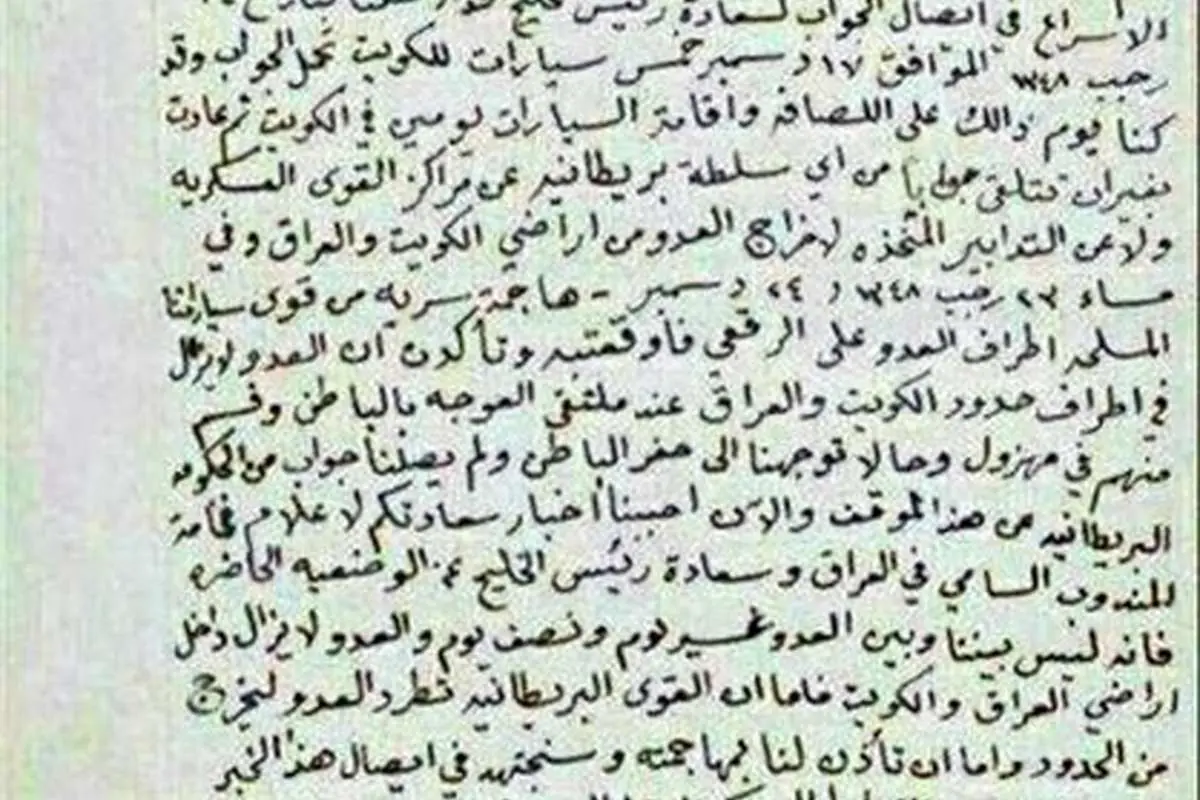 الاسراع في ايصال الجواب لسعادة رئيس
رجب ١٣٤٨ الموافق ١٧ دسمبر خمس سيارات للكويت تحمل الجواب وقد
كنا يوم ذالك على اللصافه واقامة السيارات يومين في الكويت ثم عادت
بغير ان تتلقى جوابا من اي سلطة بريطانيه عن مراكز القوى العسكريه
ولا عن التدابير المتخذه لاخراج العدو من اراضي الكويت والعراق وفي
مساء ٢٣ رجب ١٣٤٨ ( ٢٤ دسمبر - هاجمة سريه من قوى سياراتنا
المسلحه اطراف العدو على الرقعي فأوقعتبه وتأكدن ان العدو لايزال
في اطراف حدود الكويت والعراق عند ملتقى العوجه بالباطن وقسم
منهم في مهزول وحالا توجهنا الى حفر الباطن ولم يصلنا جواب من الحكومه
البريطانيه عن هذا الموقف والآن احببنا اخبار سعادتكم لاعلام فخامة
المندوب السامي في العراق وسعادة رئيس الخليج عن الوضعيه الحاضره
فانه ليس بيننا وبين العدو غير يوم ونصف يوم والعدو لايزال داخل
اراضي العراق والكويت فاما ان القوى البريطانيه تطرد العدو ليخرج
من الحدود واما ان تأذن لنا بمهاجمته وسنجتهد في ايصال هذا الخبر